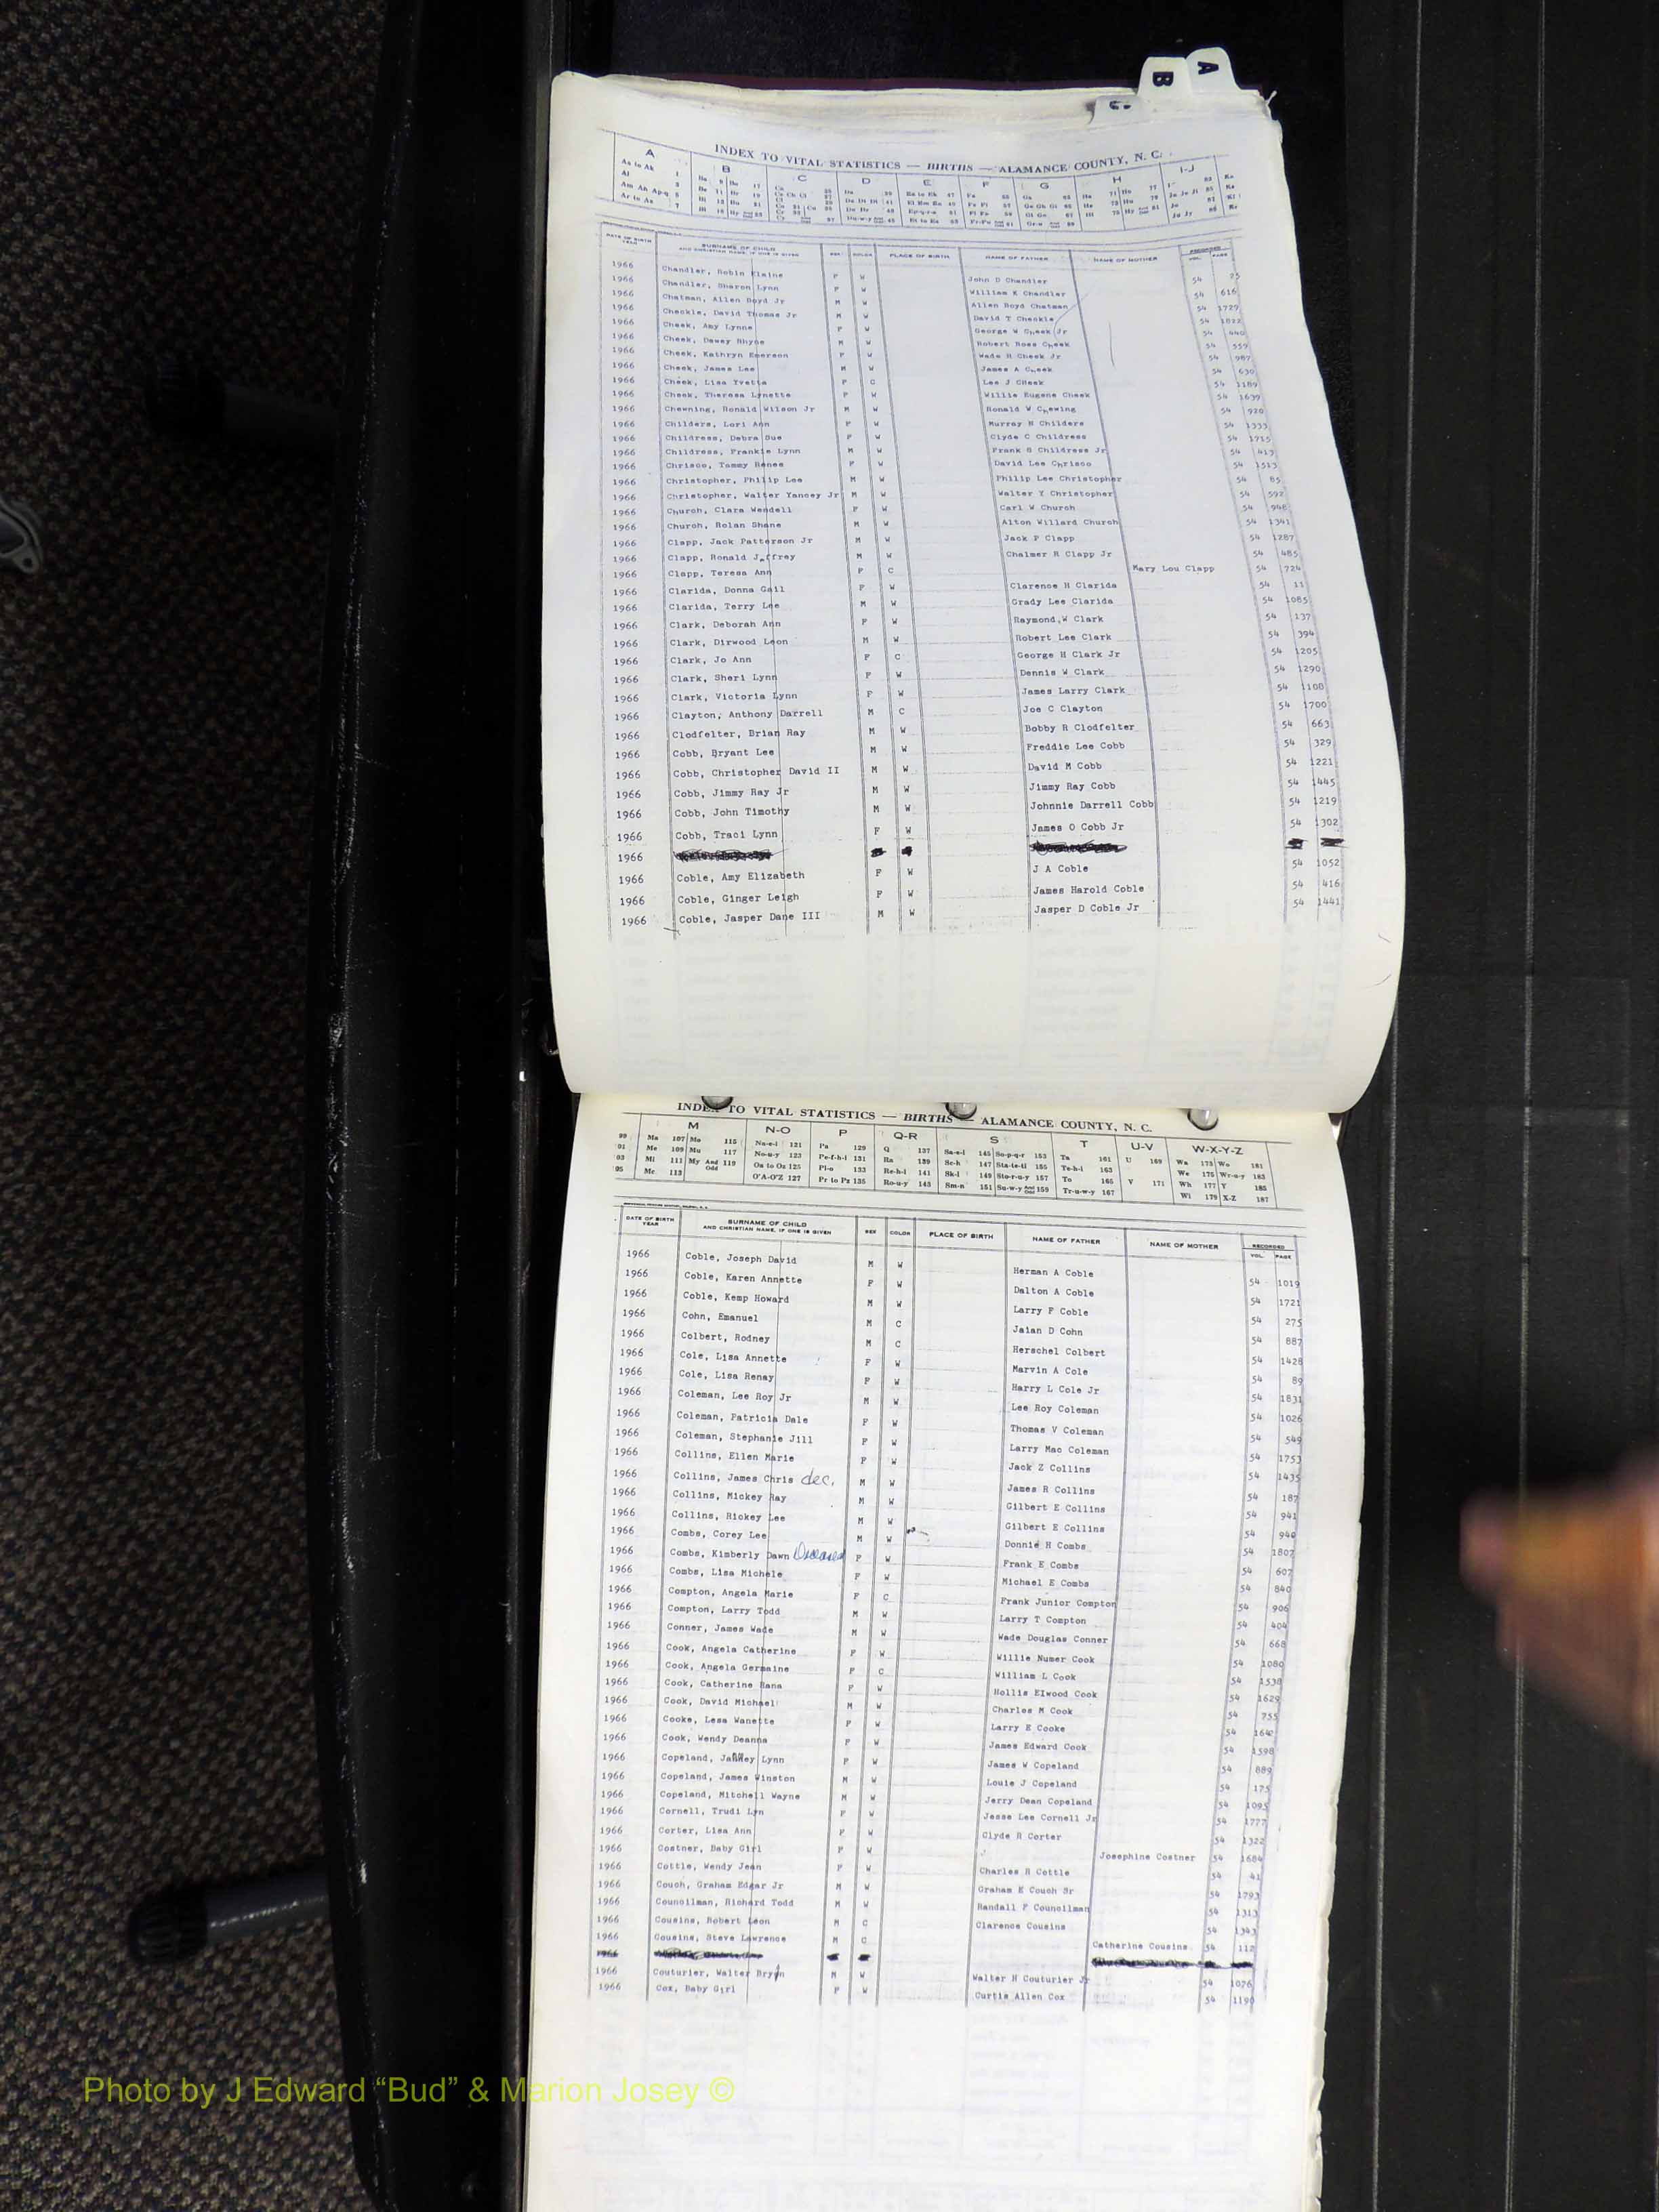 A
B
C
INDEX TO VITAL STATISTICS — BIRTHS — ALAMANCE COUNTY, N. C.
A B C D E F G H I-J
DATE OF BIRTH YEAR SURNAME OF CHILD AND CHRISTIAN NAME, IF ONE IS GIVEN SEX COLOR PLACE OF BIRTH NAME OF FATHER NAME OF MOTHER RECORDED VOL. PAGE
1966 Chandler, Robin Elaine F W John D Chandler 54 25
1966 Chandler, Sharon Lynn F W William K Chandler 54 616
1966 Chatman, Allen Boyd Jr M W Allen Boyd Chatman 54 1729
1966 Checkle, David Thomas Jr M W David T Checkle 54 1822
1966 Cheek, Amy Lynne F W George W Cheek Jr 54 440
1966 Cheek, Dewey Rhyne M W Robert Ross Cheek 54 559
1966 Cheek, Kathryn Emerson F W Wade H Cheek Jr 54 987
1966 Cheek, James Lee M W James A Cheek 54 630
1966 Cheek, Lisa Yvette F C Lee J Cheek 54 1189
1966 Cheek, Theresa Lynette F W Willie Eugene Cheek 54 1639
1966 Chewning, Ronald Wilson Jr M W Ronald W Chewing 54 920
1966 Childers, Lori Ann F W Murray H Childers 54 1333
1966 Childress, Debra Sue F W Clyde C Childress 54 1715
1966 Childress, Frankie Lynn M W Frank S Childress Jr 54 413
1966 Chrisco, Tammy Renee F W David Lee Chrisco 54 1513
1966 Christopher, Philip Lee M W Philip Lee Christopher 54 85
1966 Christopher, Walter Yancey Jr M W Walter Y Christopher 54 592
1966 Church, Clara Wendell F W Carl W Church 54 948
1966 Church, Rolan Shane M W Alton Willard Church 54 1341
1966 Clapp, Jack Patterson Jr M W Jack P Clapp 54 1287
1966 Clapp, Ronald Jeffrey M W Chalmer R Clapp Jr 54 485
1966 Clapp, Teresa Ann F C Mary Lou Clapp 54 724
1966 Clarida, Donna Gail F W Clarence H Clarida 54 11
1966 Clarida, Terry Lee M W Grady Lee Clarida 54 1085
1966 Clark, Deborah Ann F W Raymond W Clark 54 137
1966 Clark, Dirwood Leon M W Robert Lee Clark 54 394
1966 Clark, Jo Ann F C George H Clark Jr 54 1205
1966 Clark, Sheri Lynn F W Dennis W Clark 54 1290
1966 Clark, Victoria Lynn F W James Larry Clark 54 1108
1966 Clayton, Anthony Darrell M C Joe C Clayton 54 1700
1966 Clodfelter, Brian Ray M W Bobby R Clodfelter 54 663
1966 Cobb, Bryant Lee M W Freddie Lee Cobb 54 329
1966 Cobb, Christopher David II M W David M Cobb 54 1221
1966 Cobb, Jimmy Ray Jr M W Jimmy Ray Cobb 54 1445
1966 Cobb, John Timothy M W Johnnie Darrell Cobb 54 1219
1966 Cobb, Traci Lynn F W James O Cobb Jr 54 1302
1966
1966 Coble, Amy Elizabeth F W J A Coble 54 1052
1966 Coble, Ginger Leigh F W James Harold Coble 54 416
1966 Coble, Jasper Dane III M W Jasper D Coble Jr 54 1441
INDEX TO VITAL STATISTICS — BIRTHS — ALAMANCE COUNTY, N. C.
M N-O P Q-R S T U-V W-X-Y-Z
99 Ma 107 Mo 115 Na-e-i 121 Pa 129 Q 137 Sa-e-i 145 So-p-q-r 153 Ta 161 U 169 Wa 173 Wo 181
01 Me 109 Mu 117 No-u-y 123 Pe-f-h-i 131 Ra 139 Sc-h 147 Sta-te-ti 155 Te-h-i 163 We 175 Wr-u-y 183
03 Mi 111 My And Odd 119 Oa to Oz 125 Pl-o 133 Re-h-i 141 Sk-l 149 Sto-r-u-y 157 To 165 V 171 Wh 177 Y 185
05 Mc 113 O'A-O'Z 127 Pr to Pz 135 Ro-u-y 143 Sm-n 151 Su-w-y And Odd 159 Tr-u-w-y 167 Wi 179 X-Z 187
DATE OF BIRTH YEAR SURNAME OF CHILD AND CHRISTIAN NAME, IF ONE IS GIVEN SEX COLOR PLACE OF BIRTH NAME OF FATHER NAME OF MOTHER RECORDED VOL. PAGE
1966 Coble, Joseph David M W Herman A Coble 54 1019
1966 Coble, Karen Annette F W Dalton A Coble 54 1721
1966 Coble, Kemp Howard M W Larry F Coble 54 275
1966 Cohn, Emanuel M C Jaian D Cohn 54 887
1966 Colbert, Rodney M C Herschel Colbert 54 1428
1966 Cole, Lisa Annette F W Marvin A Cole 54 89
1966 Cole, Lisa Renay F W Harry L Cole Jr 54 1831
1966 Coleman, Lee Roy Jr M W Lee Roy Coleman 54 1026
1966 Coleman, Patricia Dale F W Thomas V Coleman 54 549
1966 Coleman, Stephanie Jill F W Larry Mac Coleman 54 1753
1966 Collins, Ellen Marie F W Jack Z Collins 54 1435
1966 Collins, James Chris dec. M W James R Collins 54 187
1966 Collins, Mickey Ray M W Gilbert E Collins 54 941
1966 Collins, Rickey Lee M W Gilbert E Collins 54 940
1966 Combs, Corey Lee M W Donnie H Combs 54 1807
1966 Combs, Kimberly Dawn Deceased F W Frank E Combs 54 607
1966 Combs, Lisa Michele F W Michael E Combs 54 840
1966 Compton, Angela Marie F C Frank Junior Compton 54 906
1966 Compton, Larry Todd M W Larry T Compton 54 404
1966 Conner, James Wade M W Wade Douglas Conner 54 668
1966 Cook, Angela Catherine F W Willie Numer Cook 54 1080
1966 Cook, Angela Germaine F C William L Cook 54 1538
1966 Cook, Catherine Hana F W Hollis Elwood Cook 54 1629
1966 Cook, David Michael M W Charles M Cook 54 755
1966 Cooke, Lesa Wanette F W Larry E Cooke 54 1640
1966 Cook, Wendy Deanna F W James Edward Cook 54 1598
1966 Copeland, Janney Lynn F W James W Copeland 54 889
1966 Copeland, James Winston M W Louie J Copeland 54 175
1966 Copeland, Mitchell Wayne M W Jerry Dean Copeland 54 1095
1966 Cornell, Trudi Lyn F W Jesse Lee Cornell Jr 54 1777
1966 Corter, Lisa Ann F W Clyde R Corter 54 1322
1966 Costner, Baby Girl F W Josephine Costner 54 1684
1966 Cottle, Wendy Jean F W Charles R Cottle 54 41
1966 Couch, Graham Edgar Jr M W Graham E Couch Sr 54 1793
1966 Councilman, Richard Todd M W Randall F Councilman 54 1313
1966 Cousins, Robert Leon M C Clarence Cousins 54 1343
1966 Cousins, Steve Lawrence M C Catherine Cousins 54 112
1966
1966 Couturier, Walter Bryan M W Walter H Couturier Jr 54 1076
1966 Cox, Baby Girl F W Curtis Allen Cox 54 1190
Photo by J Edward “Bud” & Marion Josey ©